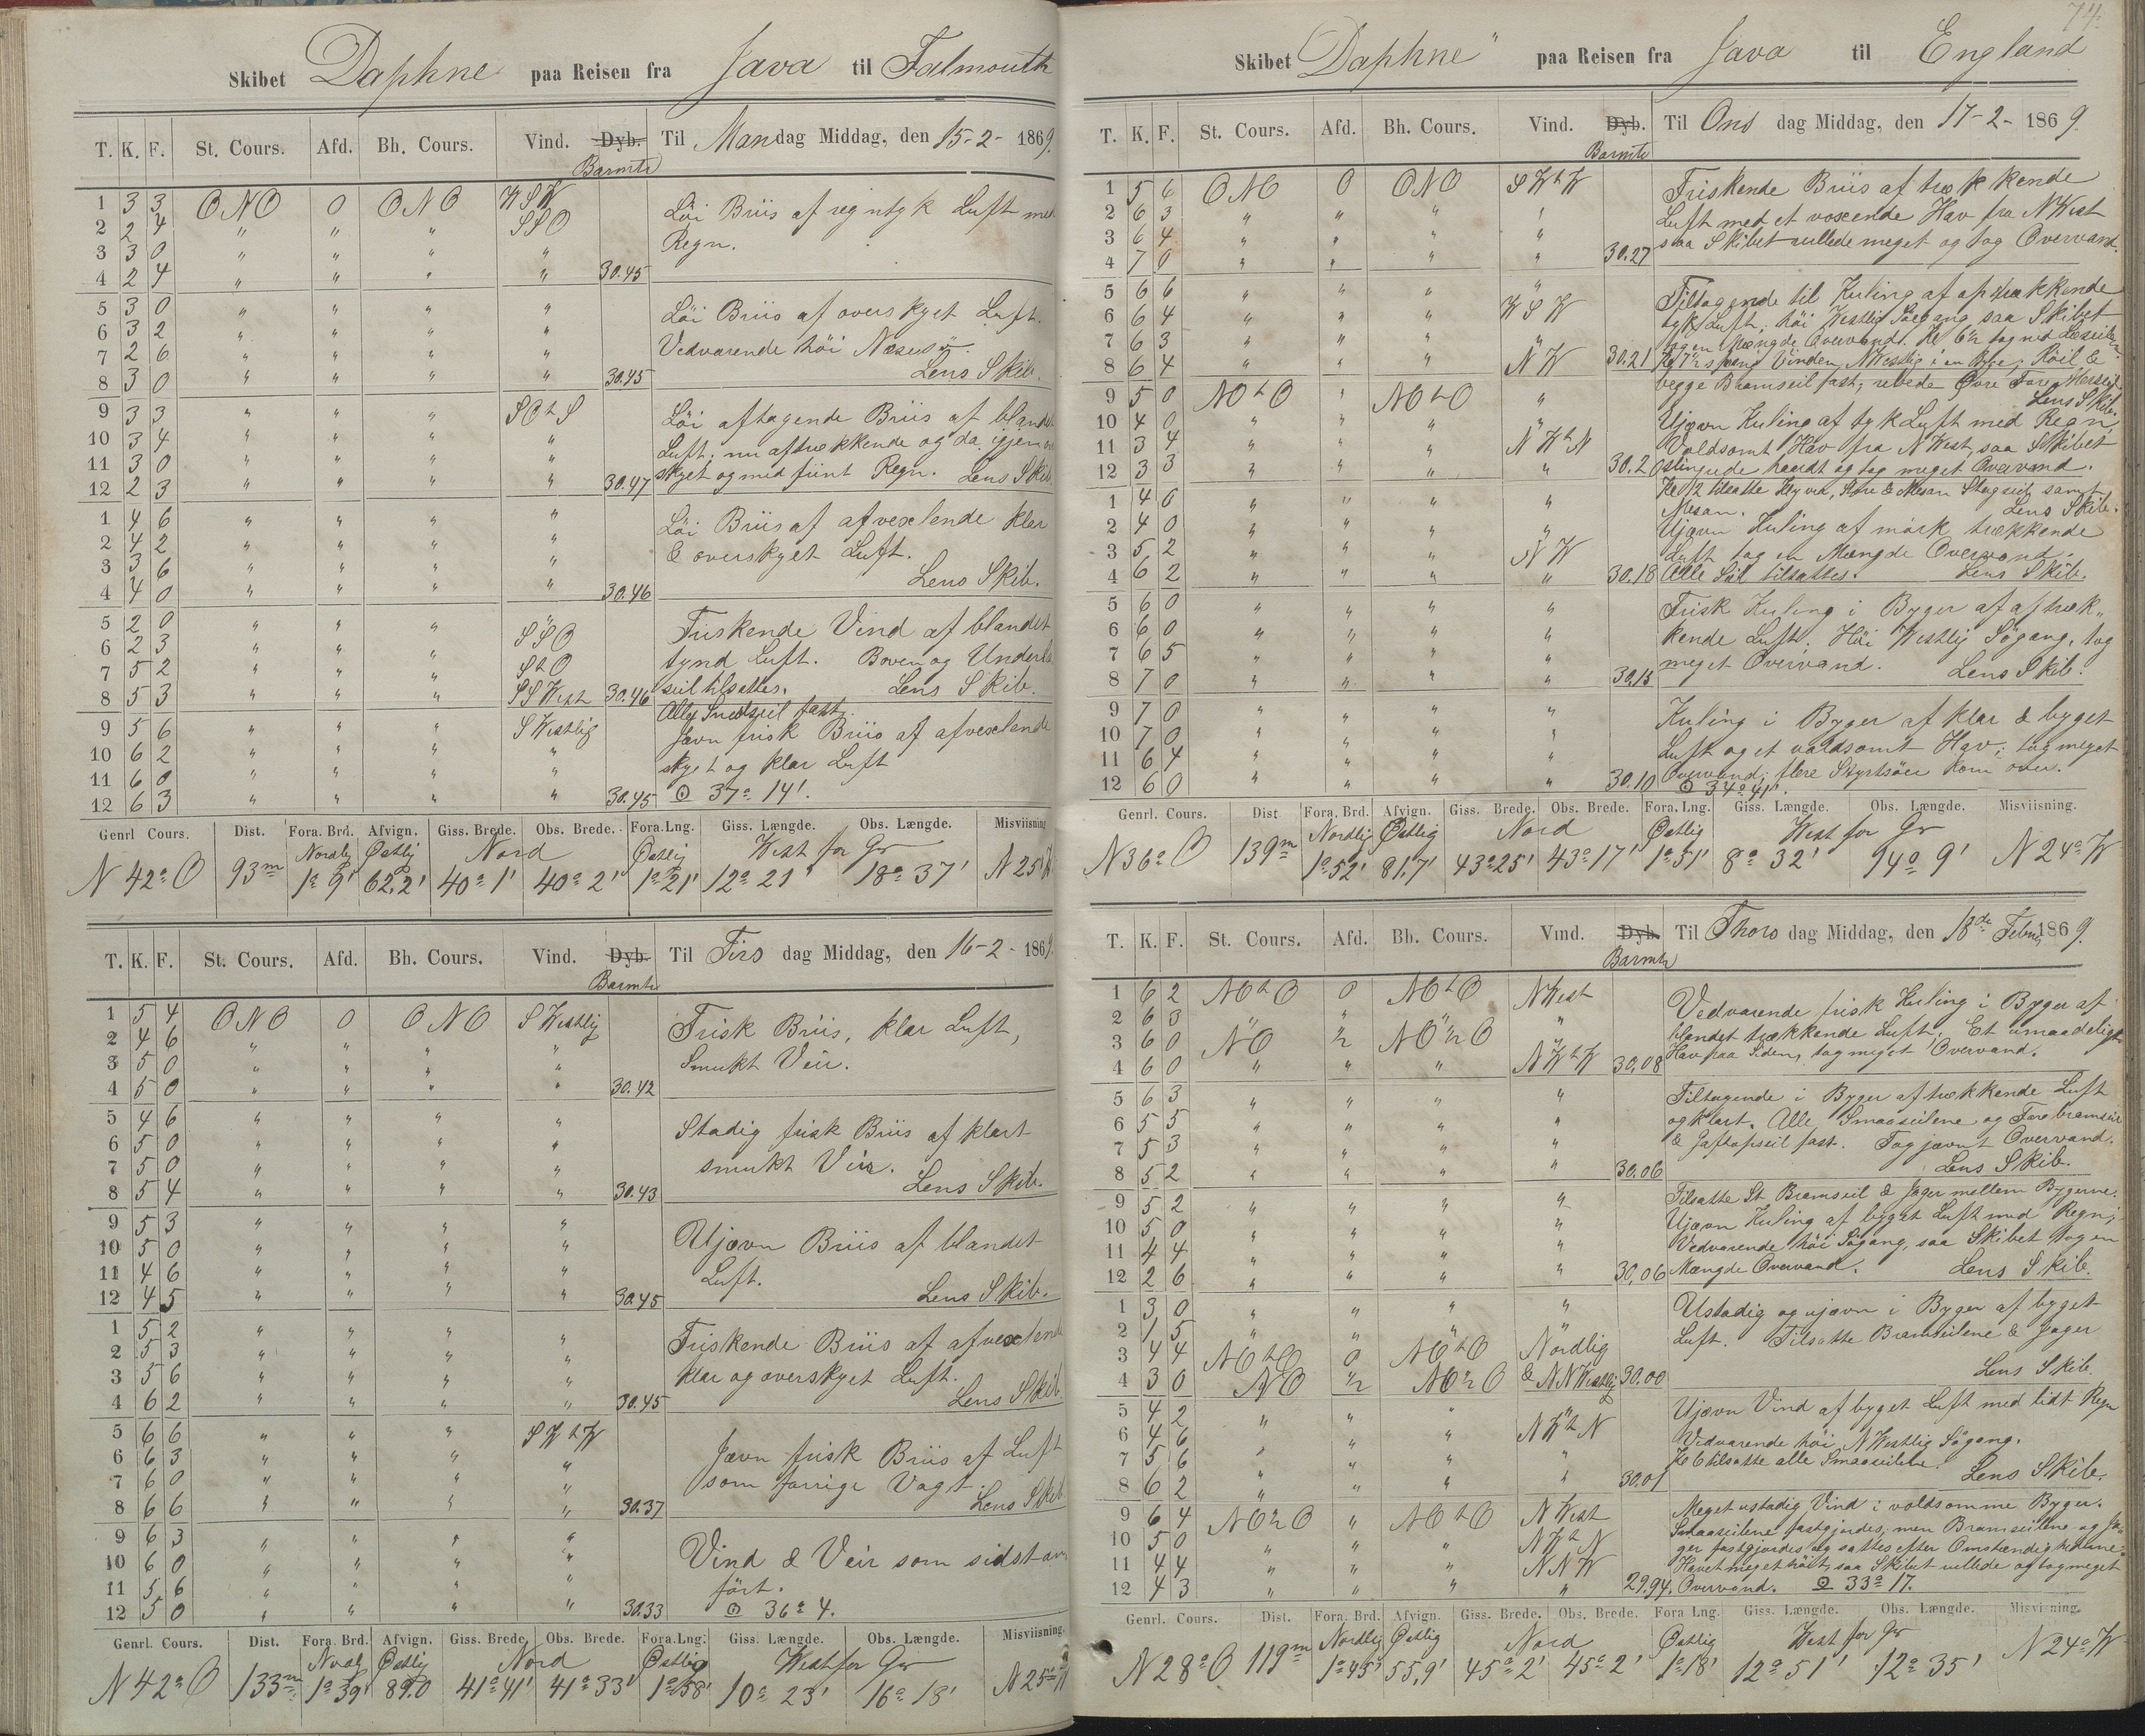 Skibet Daphne paa Reisen fra Java til Falmouth
T. K. F. St. Cours. Afd. Bh. Cours. Vind. Dyb. Barmtr Til Mandag Middag, den 15-2-1869.
1 3 3 ONO 0 ONO WSW Löi Briis af regntyk Luft med
2 2 4 " " " SSO Regn.
3 3 0 " " " "
4 2 4 " " " " 30.45
5 3 0 " " " " Löi Briis af overskyet Luft.
6 3 2 " " " " Vedvarende höi
7 2 6 " " " " Lens Skib.
8 3 0 " " " " 30.45
9 3 3 " " " SOtS Löi aftagende Briis af blandet
10 3 4 " " " " Luft; nu aftrækkende og da igjen
11 3 0 " " " " skyet og med fiint Regn. Lens Skib.
12 2 3 " " " " 30.47
1 4 6 " " " " Löi Briis af afvexlende klar
2 4 2 " " " " & overskyet Luft.
3 3 6 " " " " Lens Skib.
4 4 0 " " " " 30.46
5 2 0 " " " " Friskende Vind af blandet
6 2 3 " " " SSO tynd Luft. Boven og Underlæ
7 5 2 " " " StO seil tilsattes. Lens Skib.
8 5 3 " " " SSWest 30.46 Alle Snedseil fast.
9 5 6 " " " SWestlig Jævn frisk Briis af afvexlende
10 6 2 " " " " skyet og klar Luft
11 6 0 " " " "
12 6 3 " " " " 30.45 ⊙ 37° 14'.
Genrl Cours. Dist. Fora. Brd. Afvign. Giss. Brede. Obs. Brede. Fora. Lng. Giss. Længde. Obs. Længde. Misviisning
Nordlig Østlig Nord Østlig West for Gr
N 42° O 93m 1° 9' 62,2' 40° 1' 40° 2' 1° 21' 12° 21' 18° 37' N 25° W
T. K. F. St. Cours. Afd. Bh. Cours. Vind. Dyb. Barmtr Til Tirsdag Middag, den 16-2-1869.
1 5 4 ONO 0 ONO SWestlig Frisk Briis, klar Luft,
2 4 6 " " " " Smukt Veir.
3 5 0 " " " "
4 5 0 " " " " 30.42
5 4 6 " " " " Stadig frisk Briis af klart
6 5 0 " " " " smukt Veir.
7 5 0 " " " " Lens Skib.
8 5 4 " " " " 30.43
9 5 3 " " " " Ujævn Briis af blandet
10 5 0 " " " " Luft.
11 4 6 " " " " Lens Skib.
12 4 5 " " " " 30.45
1 5 2 " " " " Friskende Briis af afvexlende
2 5 3 " " " " klar og overskyet Luft.
3 5 6 " " " " Lens Skib.
4 6 2 " " " " 30.45
5 6 6 " " " SWtW Jævn frisk Briis af Luft
6 6 3 " " " " som forrige Vagt.
7 6 0 " " " " Lens Skib
8 6 6 " " " " 30.37
9 6 3 " " " " Vind & Veir som sidst an
10 6 0 " " " " fört.
11 5 6 " " " "
12 5 0 " " " " 30.33 ⊙ 36° 4.
Genrl. Cours. Dist. Fora. Brd. Afvign. Giss. Brede. Obs. Brede. Fora. Lng. Giss. Længde. Obs. Længde. Misviisning.
Nordl Østlig Nord Østlig West for Gr
N 42° O 133m 1° 39' 89.0 41° 41' 41° 33' 1° 58' 10° 23' 16° 18' N 25° W
74.
Skibet "Daphne" paa Reisen fra Java til England
T. K. F. St. Cours. Afd. Bh. Cours. Vind. Dyb. Barmtr Til Onsdag Middag, den 17-2-1869.
1 5 6 ONO 0 ONO SWtW Friskende Briis af trækkende
2 6 3 " " " " Luft med et voxende Hav fra NWest
3 6 4 " " " " saa Skibet rullede meget og tog Overvand.
4 7 0 " " " " 30.27
5 6 6 " " " " Tiltagende til Kuling af optrækkende
6 6 4 " " " WSW tyk Luft; höi Westlig Söegang saa Skibet
7 6 3 " " " " tog en Mængde Overvand. Kl 6½ tog ned Læseilene.
8 6 4 " " " NW 30.21 Kl 7½ sprang Vinden NWestlig i en Byge; Röil &
begge Bramseil fast; rebede Övre Fore Merseil.
9 5 0 NOtO " NOtO " Lens Skib.
10 4 0 " " " " Ujævn Kuling af tyk Luft med Regn,
11 3 4 " " " NWtN Voldsomt Hav fra NWest, saa Skibet
12 3 3 " " " " 30.20 slingrede haardt og tog meget Overvand.
Kl 12 tilsatte Klyver, Store & Mesan Stagseil samt
1 4 6 " " " " Mesan. Lens Skib.
2 4 0 " " " " Ujævn Kuling af mörk trækkende
3 5 2 " " " NW Luft tog en Mængde Overvand.
4 6 2 " " " " 30.18 Alle Seil tilsattes. Lens Skib.
5 6 0 " " " " Frisk Kuling i Byger af aftræk„
6 6 0 " " " " kende Luft. Höi Westlig Sögang, tog
7 6 5 " " " " meget Overvand. Lens Skib.
8 7 0 " " " " 30.15
9 7 0 " " " " Kuling i Byger af klar & byget
10 7 0 " " " " Luft og et voldsomt Hav; tog meget
11 6 4 " " " " Overvand; flere Styrtsöer kom over.
12 6 0 " " " " 30.10 ⊙ 34° 41'.
Genrl. Cours. Dist Fora. Brd. Afvign. Giss. Brede. Obs. Brede. Fora. Lng. Giss. Længde. Obs. Længde. Misviisning.
Nordlig Østlig Nord Østlig West for Gr
N 36° O 139m 1° 52' 81,7' 43° 25' 43° 17' 1° 51' 8° 32' 14° 9' N 24° W
T. K. F. St. Cours. Afd. Bh. Cours. Vind. Dyb. Barmtr Til Thorsdag Middag, den 18de Febru 1869.
1 6 2 NOtO 0 NOtO NWest Vedvarende frisk Kuling i Byger af
2 6 3 " " " " blandet trækkende Luft; Et umaadeligt
3 6 0 NO ½ NO½O " Hav paa Siden, tog meget Overvand.
4 6 0 " " " NWtW 30.08
5 6 3 " " " " Tiltagende i Byger af trækkende Luft
6 5 5 " " " " og klart. Alle Smaaseilene og Forebramseil
7 5 3 " " " " & Gaftopseil fast. Tog jævnt Overvand.
8 5 2 " " " " 30.06 Lens Skib.
9 5 2 " " " " Tilsatte St Bramseil & Jager mellem Bygerne.
10 5 0 " " " " Ujævn Kuling af byget Luft med Regn;
11 4 4 " " " " Vedvarende höi Sögang, saa Skibet tog en
12 2 6 " " " " 30,06 Mængde Overvand. Lens Skib.
1 3 0 " " " " Ustadig og ujævn i Byger af byget
2 1 5 " " " " Luft. Tilsatte Bramseilene & Jager
3 4 4 NOtO 0 NOtO Nordlig
4 3 0 NO ½ NO½O & NNWestlig 30.00 Lens Skib.
5 4 2 " " " " Ujævn Vind af byget Luft med lidt Regn
6 4 6 " " " NWtN Vedvarende höi NWestlig Sögang.
7 5 6 " " " " Kl 6 tilsatte alle Smaaseilene.
8 6 2 " " " " 30.01 Lens Skib.
9 6 4 NO½O " NOtO NWest Meget ustadig Vind i voldsomme Byger.
10 5 0 " " " NWtN Smaaseilene fastgjordes; men Bramseilene og Ja„
11 4 4 " " " NNW ger fastgjordes og sattes efter Omstændighederne.
Havet meget höit, saa Skibet rullede og tog meget
12 4 3 " " " " 29.94. Overvand. ⊙ 33° 17.
Genrl. Cours. Dist. Fora. Brd. Afvign. Giss. Brede. Obs. Brede. Fora Lng. Giss. Længde. Obs. Længde. Misviisning.
Nordlig Østlig Nord Østlig West for Gr
N 28° O 119m 1° 45' 55,9' 45° 2' 45° 2' 1° 18' 12° 51' 12° 35' N 24° W